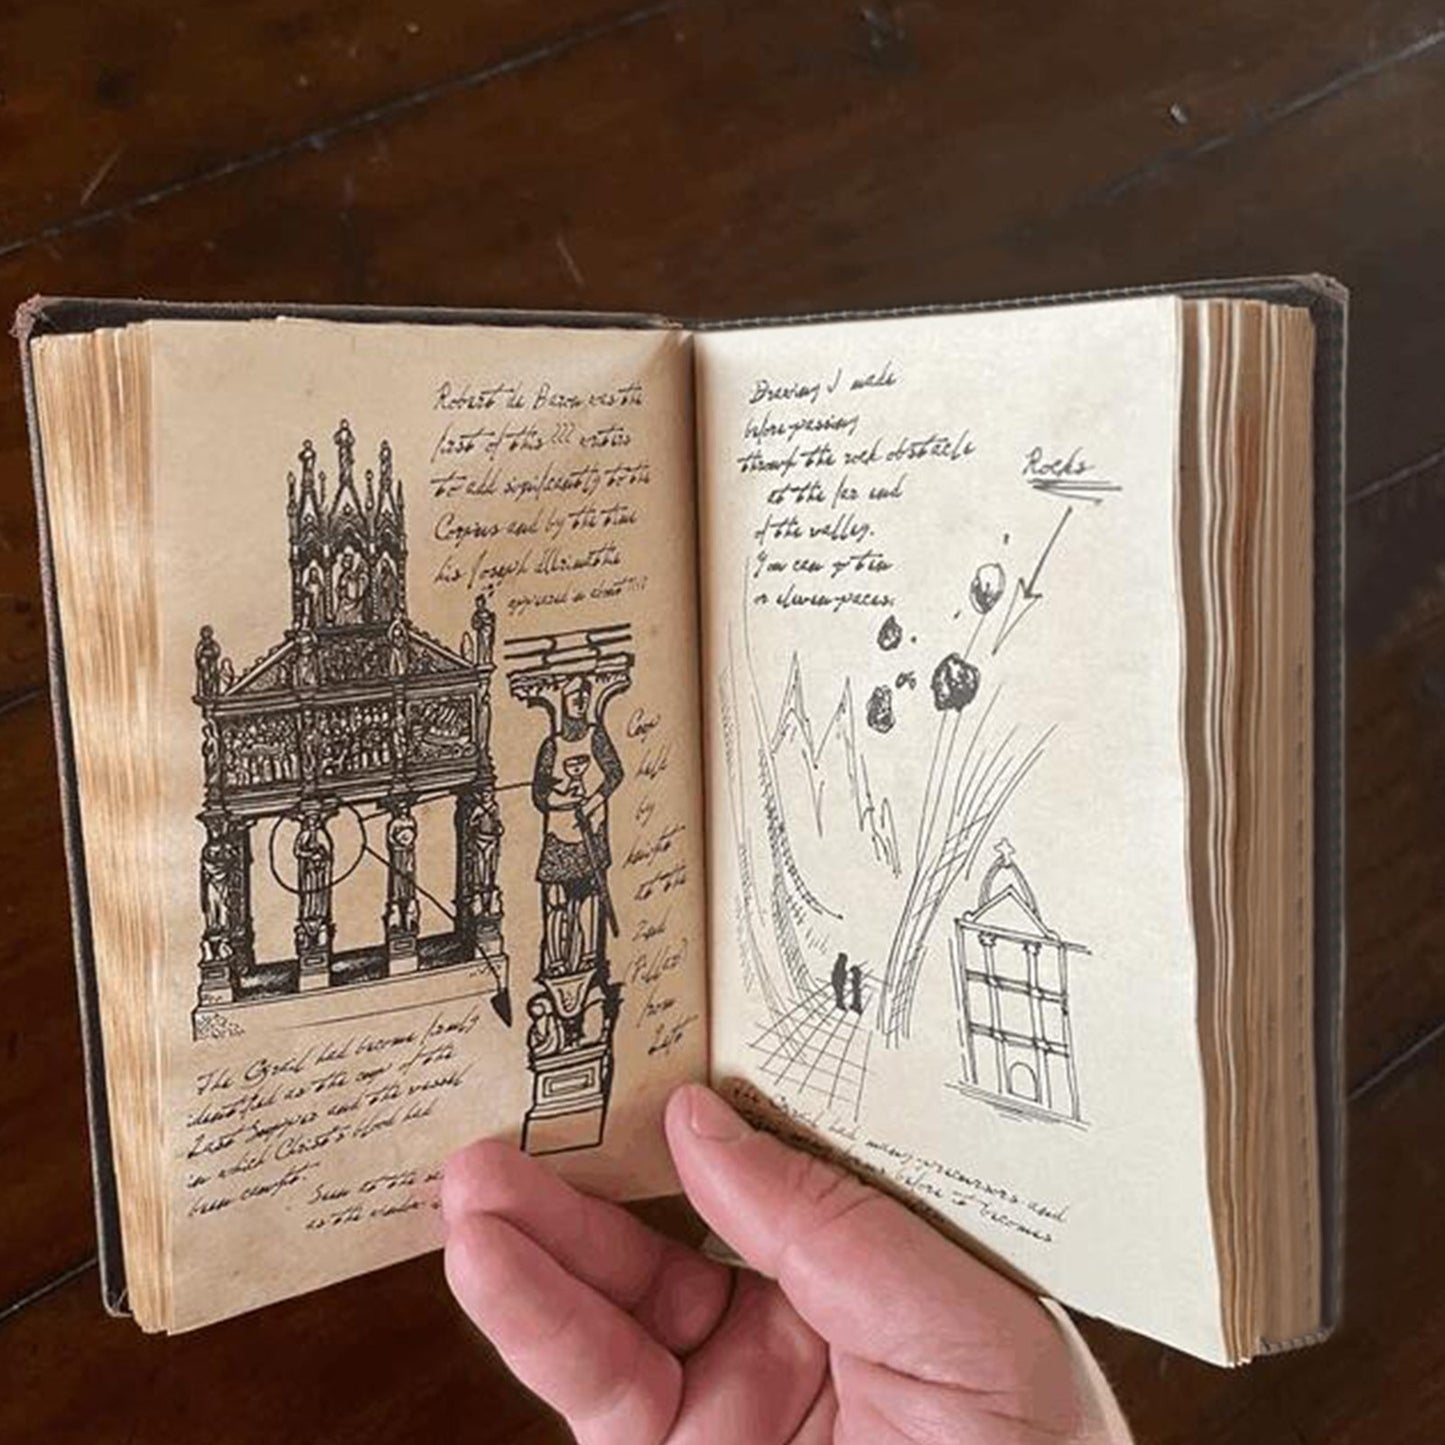 Robert de Baron was the
first of this ??? writers
to add significantly to the
Corpus and by the time
his Joseph
appeared in about ???
Cup
held
by
knight
to the
2nd
(Pillar)
from
Left
The Grail had become firmly
identified as the cup of the
Last Supper and the vessel
in which Christ's blood had
been caught.
Seen at the
as the
Drawing I made
before passing
through the rock obstacle
at the far end
of the valley.
You can go ten
or eleven paces.
Rocks
The Grail had many precursors and
before it becomes